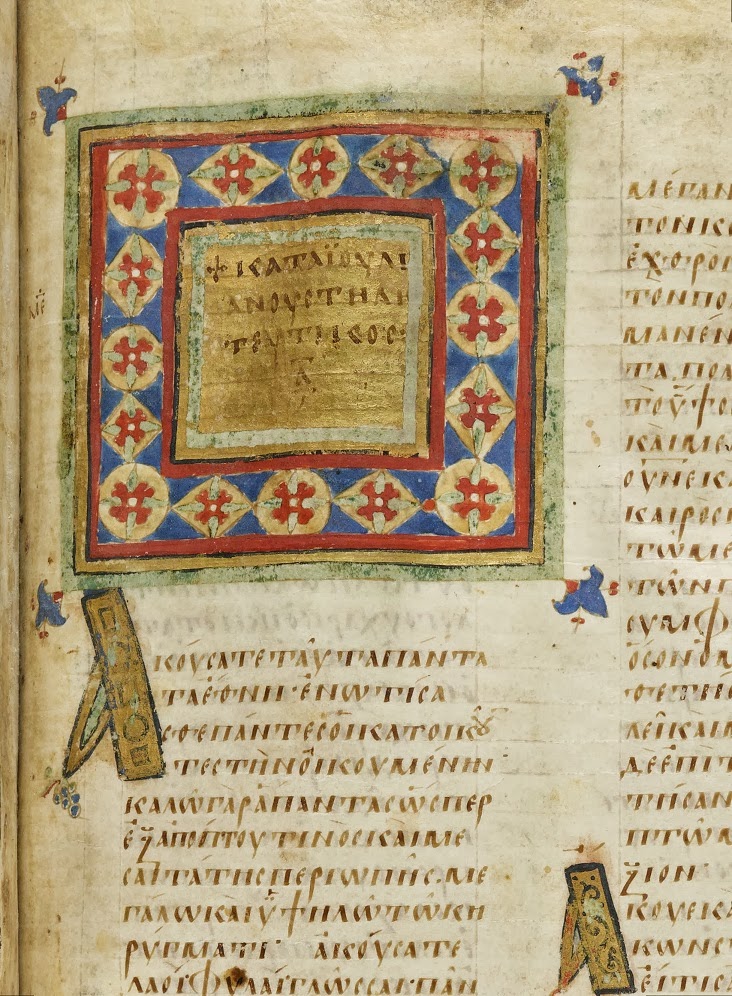 ✢ ΚΑΤΑ ΪΟΥΛΙ
ΑΝΟΥ ϹΤΗΛΙ
ΤΕΥΤΙΚΟϹ
Α
ΑΚΟΎϹΑΤΕ ΤΑΥΤΑ ΠΑΝΤΑ
ΤΑ ΕΘΝΗ· ΕΝΩΤΙϹΑ
ϹΘΕ ΠΑΝΤΕϹ ΟΙ ΚΑΤΟΙΚȢ
ΤΕϹ ΤΗΝ ΟΙΚΟΥΜΕΝΗΝ·
ΚΑΛΩ ΓΑΡ ΑΠΑΝΤΑϹ ΩϹΠΕΡ
ΕΞ ΑΠΟΠΤΟΥ ΤΙΝΟϹ ΚΑΙ ΜΕ
ϹΑΙΤΑΤΗϹ ΠΕΡΙΩΠΗϹ. ΜΕ
ΓΑΛΩ ΚΑΙ ΥΨΗΛΩ ΤΩ ΚΗ
ΡΥΓΜΑΤΙ· ΑΚΟΥϹΑΤΕ
ΛΑΟΙ ΦΥΛΑΙ ΓΛΩϹϹΑΙ ΠΑΝ
ΜΕΓΑΝ
ΤΟΝ ΚΟ
ΕΧΘΡΟ
ΤΟΝ ΠΟ
ΜΑΝΕΝ
ΤΑ. ΠΟΛ
ΤΟ ΥΨΟ
ΚΑΙ ΜΕΛ
ΟΥΝ ΕΚ
ΚΑΙ ΠΡΟϹ
ΤΩ ΜΕ
ΤΩΝ
ϹΥΜΦ
ΟϹΟΝ
ΘΕ ΤΗ
ΛΕΙ ΚΑΙ
ΔΕ ΕΠΙ Τ
ΤΗϹ ΑΝ
ΠΤΩΜ
ΞΙΟΝ
ΑΚΟΥΕ ΚΑ
ΚΩΝϹΤ
ΕΙ ΤΙϹ